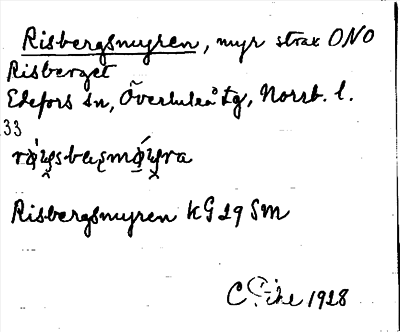 Risbergsmyren, myr strax ONO
Risberget
Edefors sn, Överluleå tg, Norrb. l.
33
Risbergsmyren KG 29 SM
C 1928